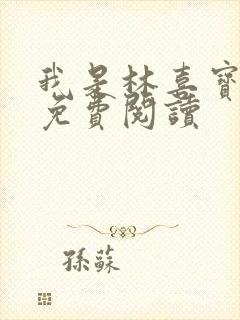 我是林喜寶
免費閱讀
孫蘇